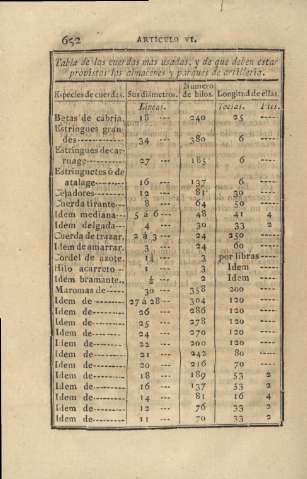 652 ARTÍCULO VI.
Tabla de las cuerdas mas usadas, y de que deben estar
provistos los almacenes y parques de artillería.
Especies de cuerdas. Sus diámetros. Número de hilos. Longitud de ellas.
Líneas. Toesas. Pies.
Betas de cabria. 18 --- 240 25 ----
Estringues gran
des---------- 34 --- 380 6 ----
Estringues de car
ruage-------- 27 --- 185 6 ----
Estringuetes ó de
atalage------- 16 --- 137 6 ----
Cejadores------ 12 --- 81 30 ----
Cuerda tirante--- 8 --- 64 50 ----
Idem mediana--- 5 á 6 -- 48 41 4
Idem delgada--- 4 --- 30 33 2
Cuerda de trazar. 2 á 3 -- 24 250 ----
Idem de amarrar. 3 --- 24 60 ----
Cordel de azote. 1½ --- 3 por libras ----
Hilo acarreto -- 1 --- 3 Idem ----
Idem bramante.. ½ --- 2 Idem ----
Maromas de----- 30 --- 358 200 ----
Idem de ------- 27 á 28 -- 304 120 ----
Idem de-------- 26 --- 286 120 ----
Idem de-------- 25 --- 278 120 ----
Idem de-------- 24 --- 270 120 ----
Idem de-------- 22 --- 200 120 ----
Idem de-------- 21 --- 242 80 ----
Idem de-------- 20 --- 216 70 ----
Idem de-------- 18 --- 189 53 2
Idem de-------- 16 --- 137 53 2
Idem de-------- 14 --- 81 16 4
Idem de-------- 12 --- 76 33 2
Idem de-------- 11 --- 70 33 2